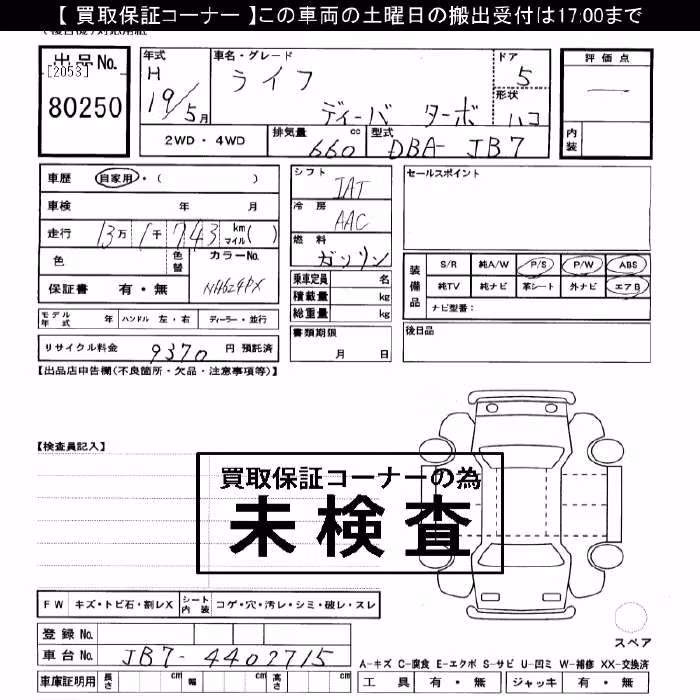 【 買取保証コーナー 】この車両の土曜日の搬出受付は17:00まで
出品No.
[2053]
80250
年式
H
19/5月
車名・グレード
ライフ
ディーバ ターボ
ドア
5
形状
ハコ
評価点
—
内装
2WD・4WD
排気量 660 cc
型式 DBA- JB7
車歴 自家用・( )
車検 年 月
走行 13万 1千 743 km マイル( )
色
色替
カラーNo.
NH624PX
保証書 有・無
シフト
IAT
冷房
AAC
燃料
ガソリン
乗車定員 名
積載量 kg
総重量 kg
書類期限
月 日
セールスポイント
装備品
S/R 純A/W P/S P/W ABS
純TV 純ナビ 革シート 外ナビ エアB
ナビ型番:
後日品
モデル年式 年 ハンドル 左・右 ディーラー・並行
リサイクル料金 9370 円 預託済
【出品店申告欄(不良箇所・欠品・注意事項等)】
【検査員記入】
買取保証コーナーの為
未検査
FW キズ・トビ石・割レX シート内装 コゲ・穴・汚レ・シミ・破レ・スレ
登録No.
車台No. JB7-4402715
車庫証明用 長さ cm 幅 cm 高さ cm
スペア
A-キズ C-腐食 E-エクボ S-サビ U-凹ミ W-補修 XX-交換済
工具 有・無 ジャッキ 有・無